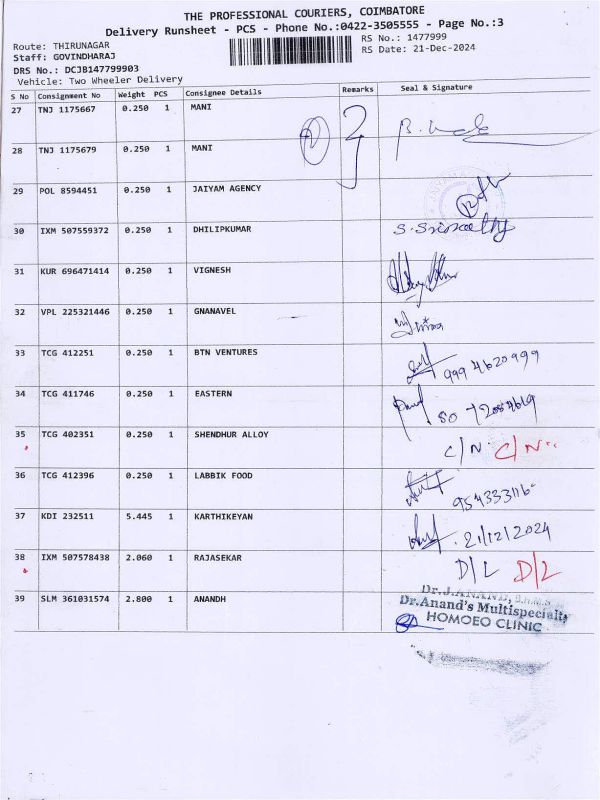 THE PROFESSIONAL COURIERS, COIMBATORE
Delivery Runsheet - PCS - Phone No.:0422-3505555 - Page No.:3
Route: THIRUNAGAR
RS No.: 1477999
Staff: GOVINDHARAJ
RS Date: 21-Dec-2024
DRS No.: DCJB147799903
Vehicle: Two Wheeler Delivery
S No Consignment No Weight PCS Consignee Details Remarks Seal & Signature
27 TNJ 1175667 0.250 1 MANI
28 TNJ 1175679 0.250 1 MANI
29 POL 8594451 0.250 1 JAIYAM AGENCY
30 IXM 507559372 0.250 1 DHILIPKUMAR
31 KUR 696471414 0.250 1 VIGNESH
32 VPL 225321446 0.250 1 GNANAVEL
33 TCG 412251 0.250 1 BTN VENTURES 999 4620999
34 TCG 411746 0.250 1 EASTERN
35 TCG 402351 0.250 1 SHENDHUR ALLOY C/N. C/N.
36 TCG 412396 0.250 1 LABBIK FOOD
37 KDI 232511 5.445 1 KARTHIKEYAN 21/12/2024
38 IXM 507578438 2.060 1 RAJASEKAR D/L D/L
39 SLM 361031574 2.800 1 ANANDH
Dr.J.ANAND,
Dr.Anand's Multispecialty
HOMOEO CLINIC